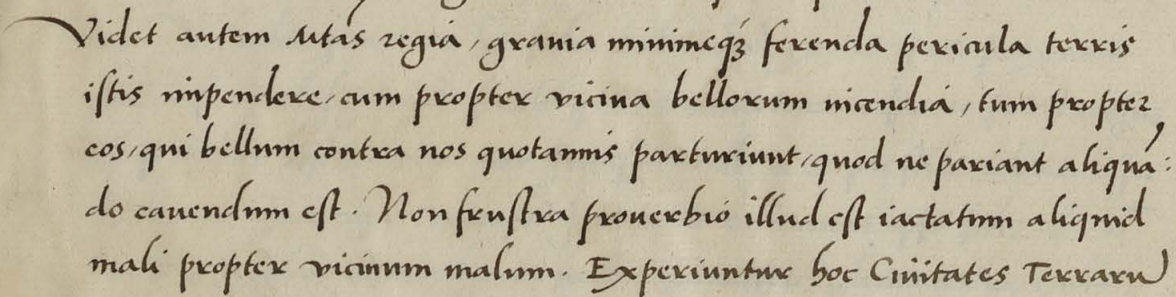 Videt autem Mtas regia, grauia minimeq́ꝫ ferenda pericula terris
istis impendere, cum propter vicina bellorum incendia, tum propter
eos, qui bellum contra nos quotannis parturiunt, quod ne pariant aliquā:
do cauendum est. Non frustra prouerbio illud est iactatum aliquid
mali propter vicinum malum. Experiuntur hoc Ciuitates Terrarū